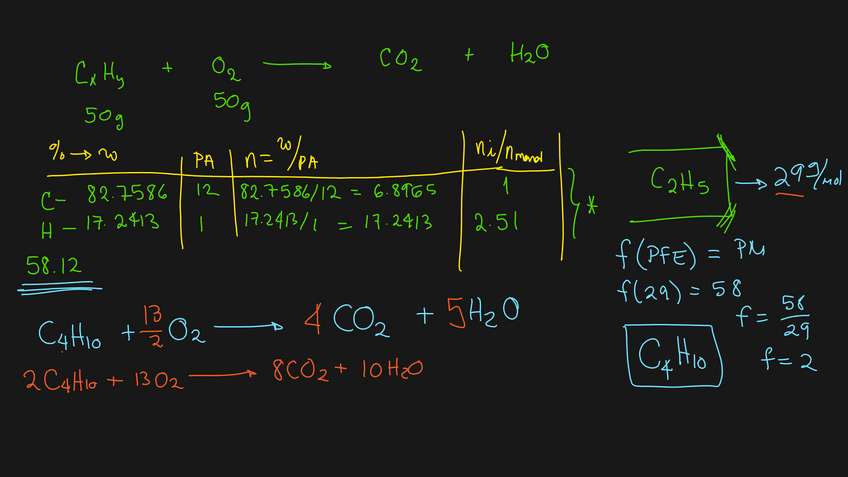 CxHy + O2 → CO2 + H2O
50g 50g
% → w PA n = w/PA ni/nmenor
C- 82.7586 12 82.7586/12 = 6.8965 1
H - 17.2413 1 17.2413/1 = 17.2413 2.51
*
58.12
C2H5 → 29g/mol
f(PFE) = PM
f(29) = 58
f = 58/29
f = 2
C4H10
C4H10 + 13/2 O2 → 4 CO2 + 5H2O
2C4H10 + 13O2 → 8CO2 + 10H2O